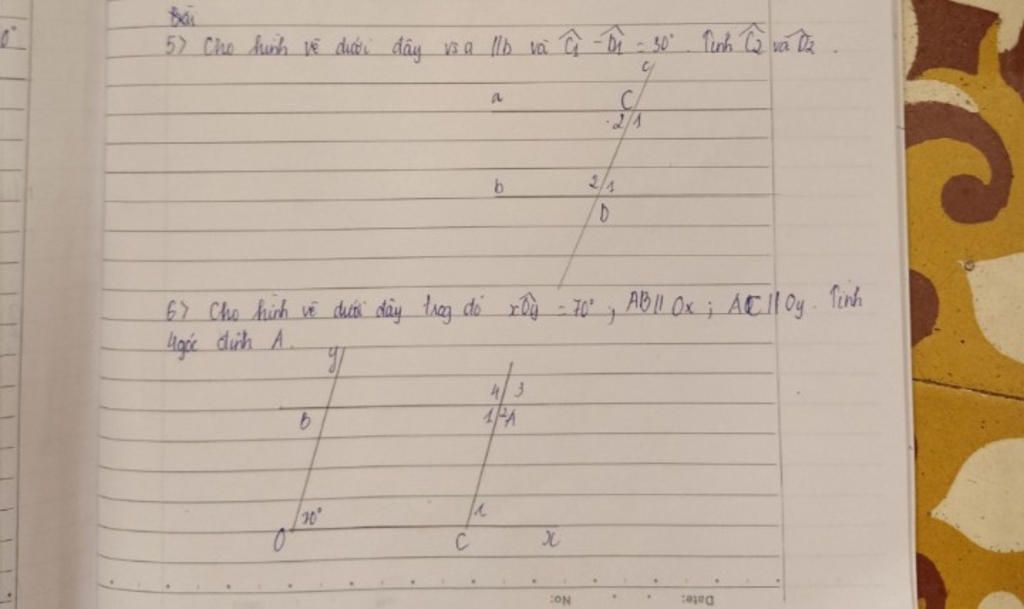 Bài
0°
5) Cho hình vẽ dưới đây vs a // b và Ĉ1 - D̂1 = 30°. Tính Ĉ2 và D̂2.
c
a
C
2 1
b
2 1
D
6) Cho hình vẽ dưới đây trog đó xÔy = 70°; AB // Ox; AC // Oy. Tính
4 góc đỉnh A.
y
4 3
B
1 2 A
70°
1
O
C
x
No:
Date: